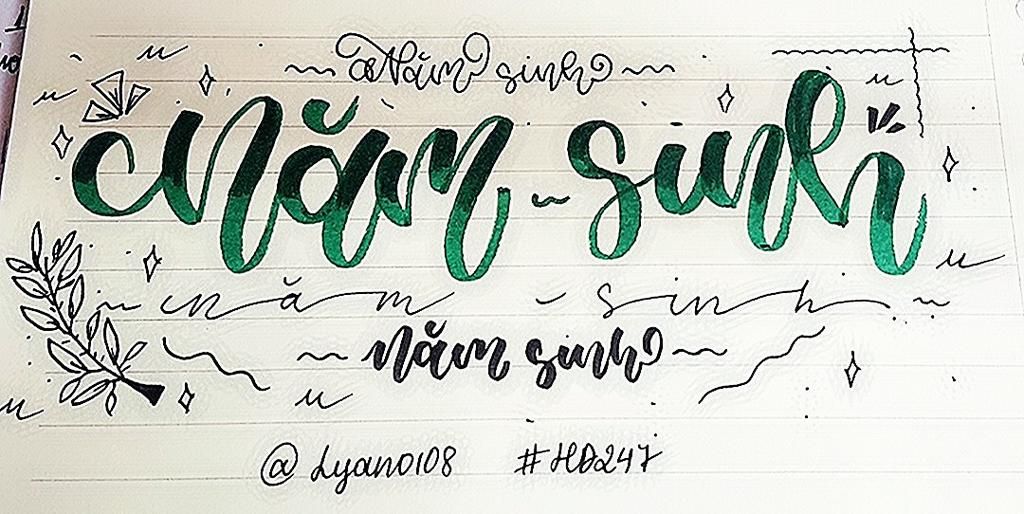 Năm sinh
Năm sinh
năm sinh
năm sinh
@ Lyano108 #HD247